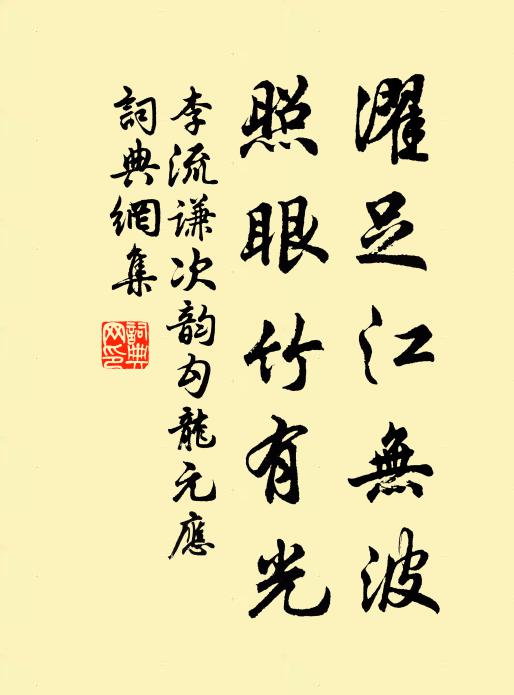 濯足江無波
照眼竹有光
李流謙次韵勾龍元應
詞典網集
詞典網印